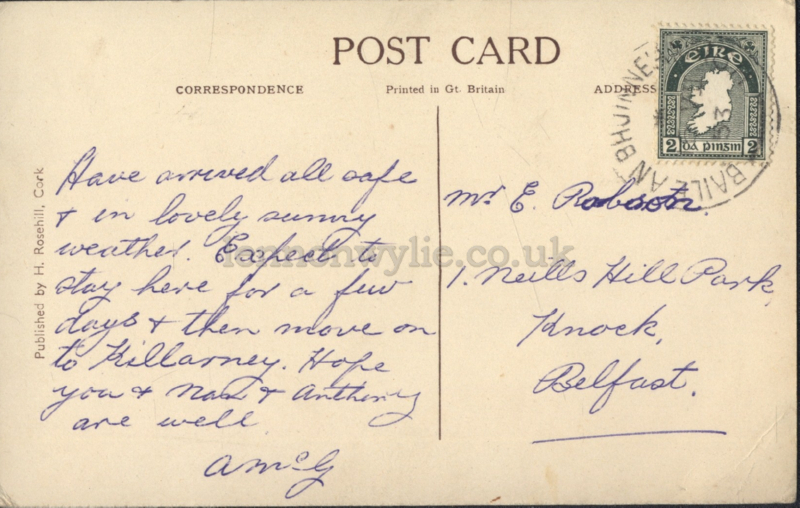 POST CARD
CORRESPONDENCE
Printed in Gt. Britain
ADDRESS
ÉIRE
2 dá pinginn 2
BAILE AN BHUINNEÁ
53
Published by H. Rosehill, Cork
Have arrived all safe
& in lovely sunny
weather. Expect to
stay here for a few
days & then move on
to Killarney. Hope
you & Nan & Anthony
are well
A McG
Mr E. Robson
1. Neills Hill Park,
Knock,
Belfast.
lennonwylie.co.uk